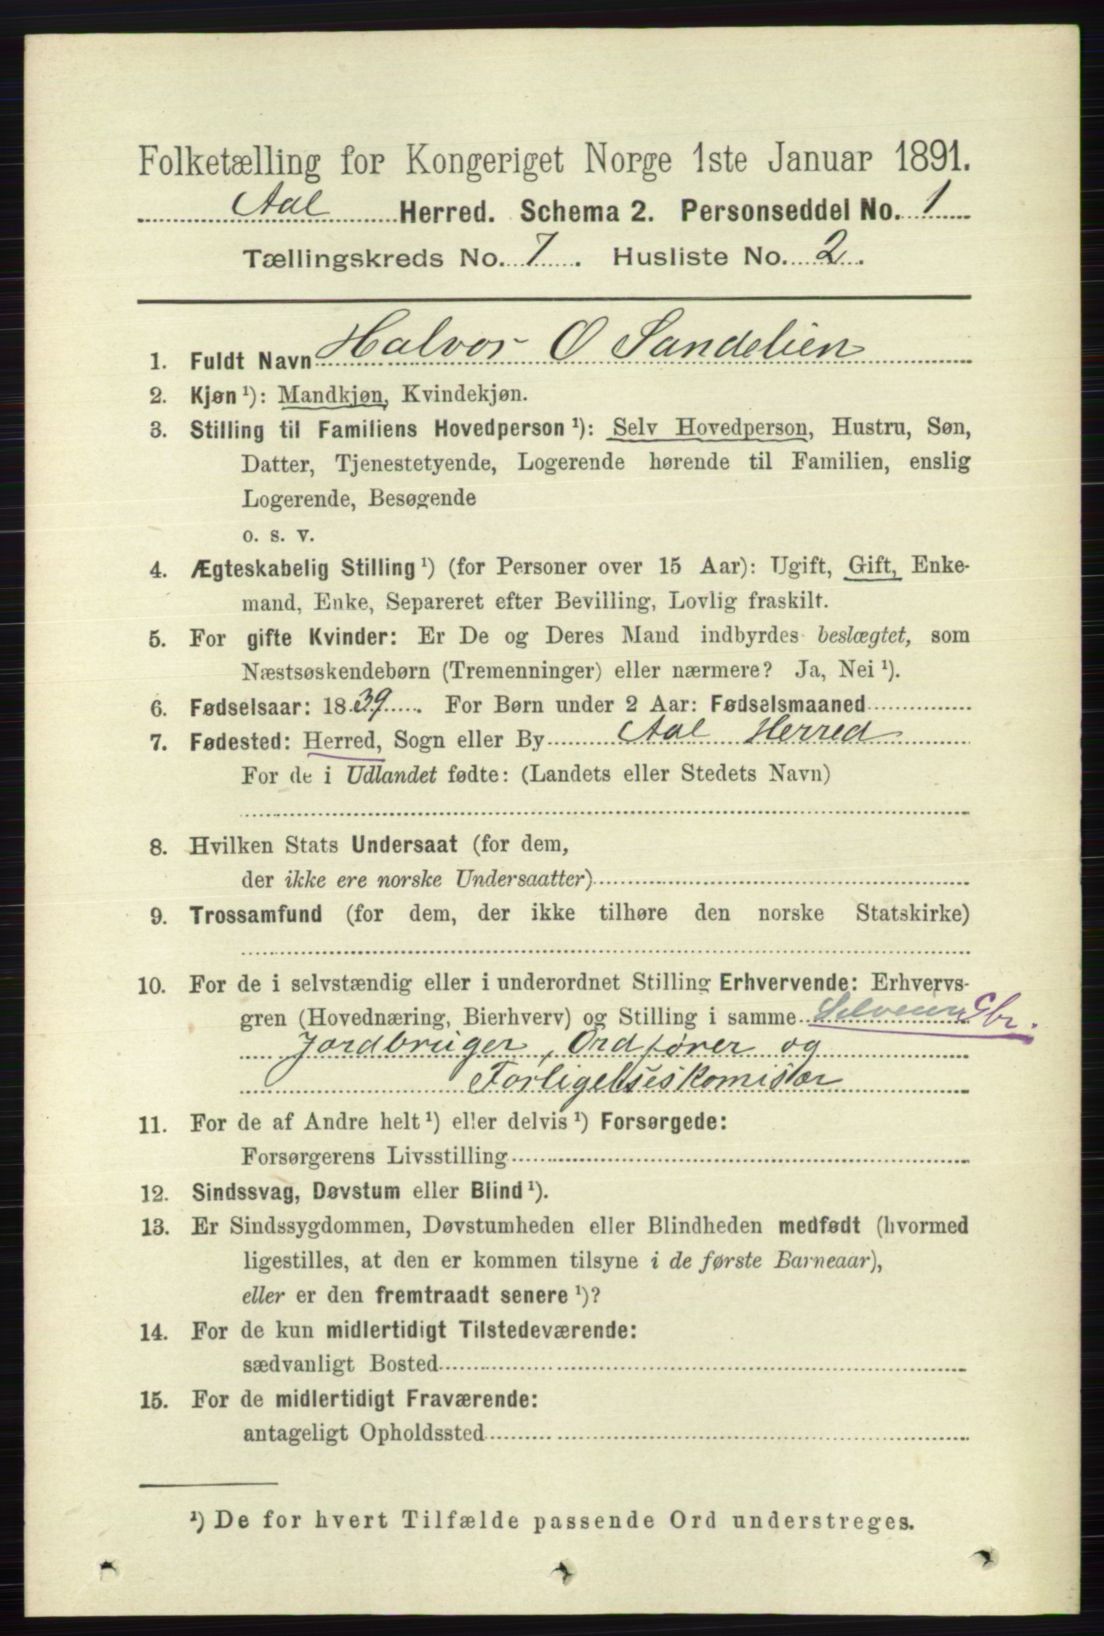 Folketælling for Kongeriget Norge 1ste Januar 1891.
Aal Herred. Schema 2. Personseddel No. 1
Tællingskreds No. 7. Husliste No. 2.
1. Fuldt Navn Halvor O Sandelien
2. Kjøn ¹): Mandkjøn, Kvindekjøn.
3. Stilling til Familiens Hovedperson ¹): Selv Hovedperson, Hustru, Søn,
Datter, Tjenestetyende, Logerende hørende til Familien, enslig
Logerende, Besøgende
o. s. v.
4. Ægteskabelig Stilling ¹) (for Personer over 15 Aar): Ugift, Gift, Enke-
mand, Enke, Separeret efter Bevilling, Lovlig fraskilt.
5. For gifte Kvinder: Er De og Deres Mand indbyrdes beslægtet, som
Næstsøskendebørn (Tremenninger) eller nærmere? Ja, Nei ¹).
6. Fødselsaar: 1839. For Børn under 2 Aar: Fødselsmaaned
7. Fødested: Herred, Sogn eller By Aal Herred
For de i Udlandet fødte: (Landets eller Stedets Navn)
8. Hvilken Stats Undersaat (for dem,
der ikke ere norske Undersaatter)
9. Trossamfund (for dem, der ikke tilhøre den norske Statskirke)
10. For de i selvstændig eller i underordnet Stilling Erhvervende: Erhvervs-
gren (Hovednæring, Bierhverv) og Stilling i samme Selveier Gbr.
Jordbruger, Ordfører og
Forligelseskomisær
11. For de af Andre helt ¹) eller delvis ¹) Forsørgede:
Forsørgerens Livsstilling
12. Sindssvag, Døvstum eller Blind ¹).
13. Er Sindssygdommen, Døvstumheden eller Blindheden medfødt (hvormed
ligestilles, at den er kommen tilsyne i de første Barneaar),
eller er den fremtraadt senere ¹)?
14. For de kun midlertidigt Tilstedeværende:
sædvanligt Bosted
15. For de midlertidigt Fraværende:
antageligt Opholdssted
¹) De for hvert Tilfælde passende Ord understreges.